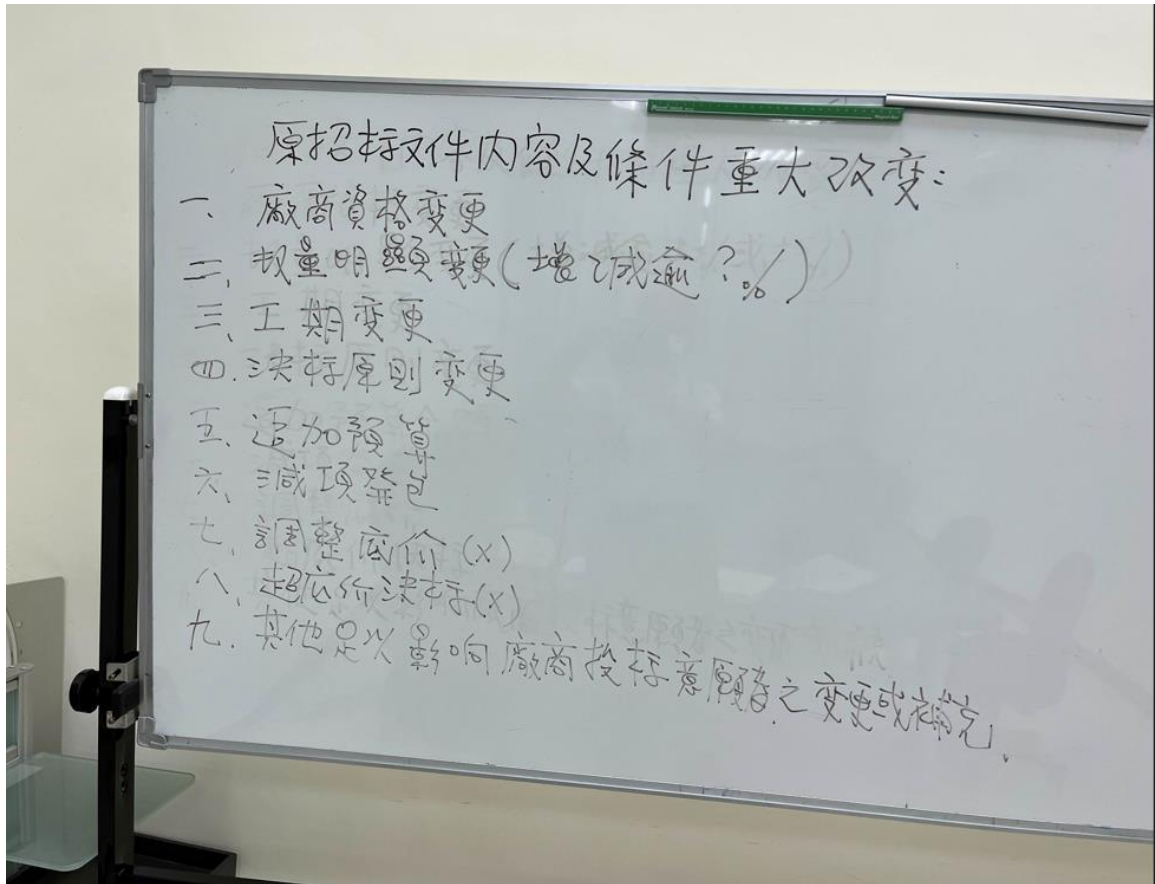 原招标文件内容及條件重大改変:
一、廠商資格変更
二、数量明顯変更(增減逾?%)
三、工期変更
四.決标原則変更
五、追加預算
六、減項發包
七、調整底价(x)
八、超底价決标(x)
九.其他足以影响廠商投标意願者之変更或補充、